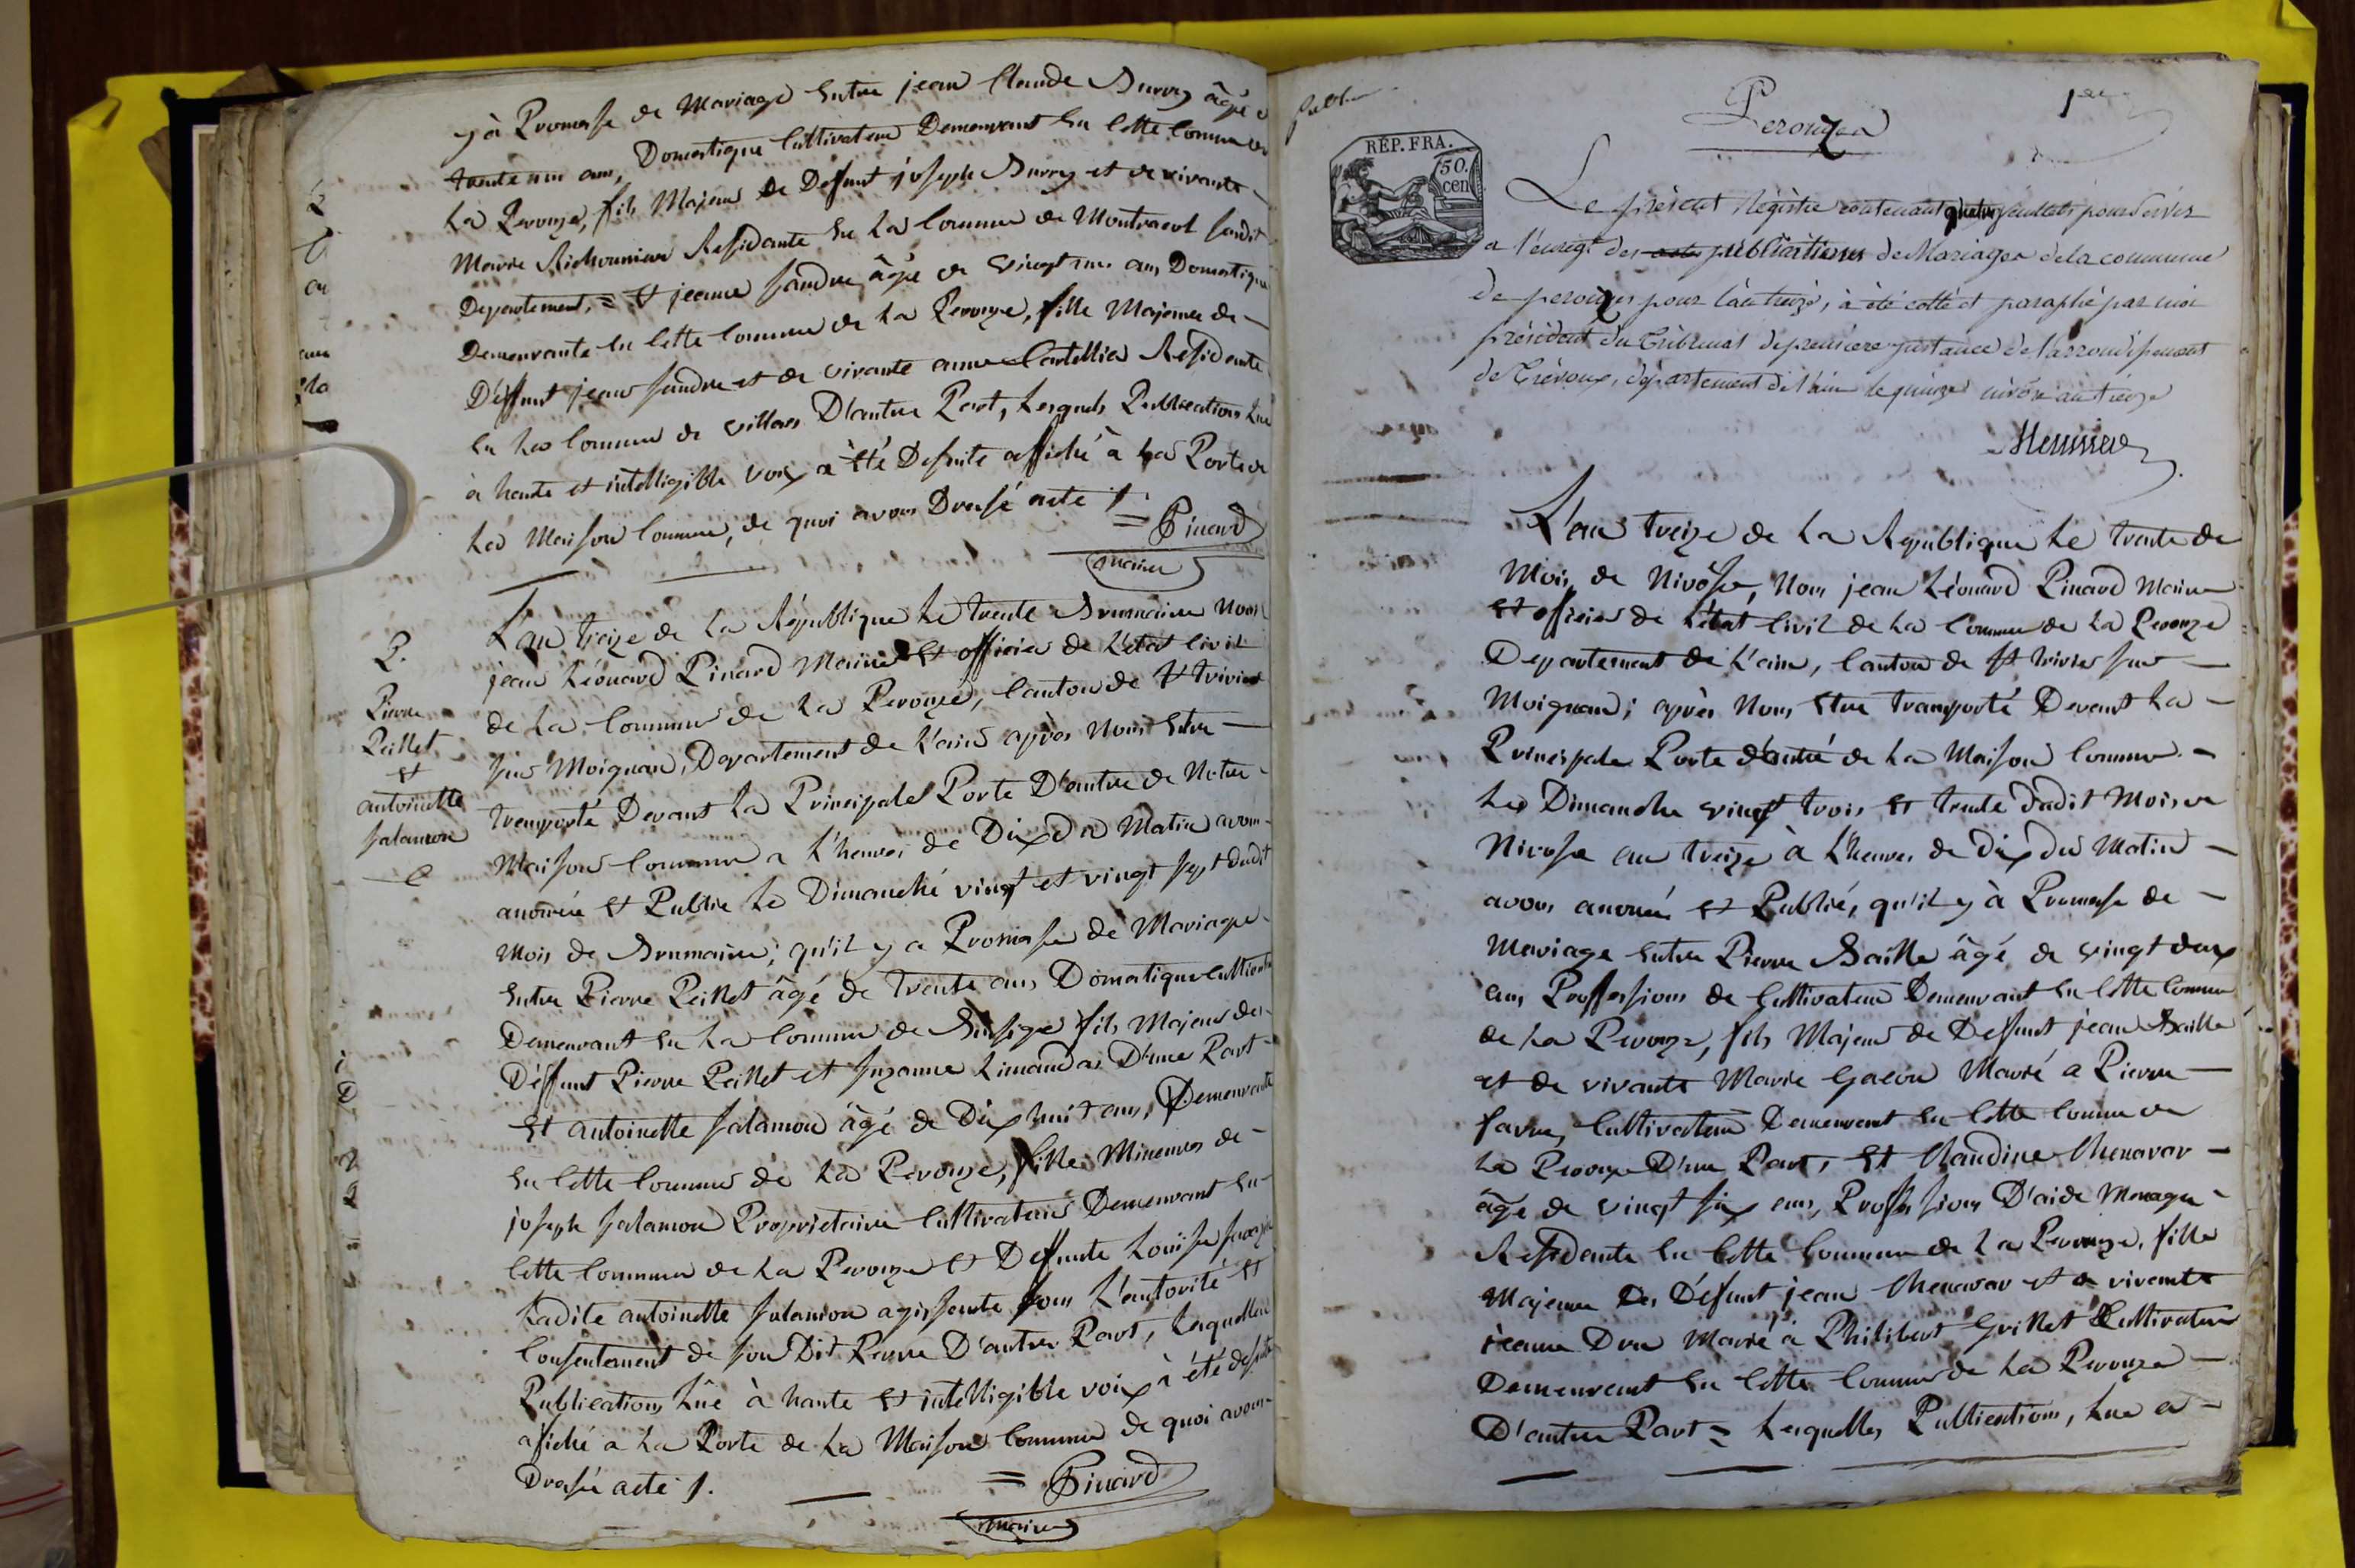 y à Promesse de Mariage Entre jean Claude Burry âgé de
trente un ans, Domestique Cultivateur Demeurant En Cette Commune de
La Perouze, fils Majeur de Deffunt joseph Burry et de vivante
Marie Residante En La Commune de Montracol susdit
Departement, = Et jeanne Sandre âgée de vingt un ans Domestique
Demeurante En Cette Commune de La Perouze, fille Majeure de
Déffunt jean Sandre et de vivante anne Residante
En La Commune de villars D'autre Part, Lesquels Publications Lue
à haute et intelligible voix a Été De suite affiché à La Porte de
La Maison Commune, de quoi avons Dressé acte /.
= Pinard
maire
P.
Pierre
Peillet
et
antoinette
salamon
L'an treize de La République Le trente Brumaire Nous
jean Léonard Pinard Maire Et officier de L'état Civil
de La Commune de La Perouze, Canton de St trivier
sur Moignan, Departement de L'ain après Nous Estre
transporté Devant La Principale Porte D'entrée de Notre
Maison Commune a L'heure de Dix du Matin avons
anoncé Et Publié Le Dimanche vingt et vingt sept dudit
Mois de Brumaire; qu'il y a Promesse de Mariage
Entre Pierre Peillet âgé de trente ans Domestique Cultivateur
Demeurant En La Commune de fils Majeur de
Déffunt Pierre Peillet et suzanne Limandas D'une Part
Et antoinette salamon âgé de Dix huit ans, Demeurante
En Cette Commune de La Perouze, fille Mineure de
joseph salamon Proprietaire Cultivateur Demeurant En
Cette Commune de La Perouze Et Deffunte Louise
Ladite antoinette salamon agissante sous L'autorité Et
Consentement de son Dit Perre D'autre Part, Laquelle
Publication Lüe à haute Et intelligible voix à été de suite
afiché a La Porte de La Maison Commune de quoi avons
Dressé acte /.
= Pinard
maire
1er
Perouzea
RÉP. FRA.
50.
cen
Le présent Régistre contenant feuillets pour servir
a l'enregt. des actes publications de Mariages de la commune
de perouzes pour l'an treize, à été cotté et paraphé par moi
président du Tribunal de première instance de l'arrondissement
de Trévoux, département de l'ain le quinze nivôse an treize
L'an treize de La République Le trente de
Mois de Nivôse, Nous jean Léonard Pinard Maire
Et officier de L'état Civil de La Commune de La Perouze
Departement de L'ain, Canton de St trivier sur
Moignan; après Nous Etre transporté Devant La
Principale Porte d'entré de La Maison Commune
Les Dimanche vingt trois Et trente dudit Mois de
Nivose an treize à L'heure de dix du Matin
avons anoncé Et Publié, qu'il y à Promesse de
Mariage Entre Pierre Baille âgé de vingt deux
ans Proffession de Cultivateur Demeurant En Cette Commune
de La Perouze, fils Majeur de Deffunt jean Baille
et de vivante Marie Gacon Marié a Pierre
favre, Cultivateur Demeurant En Cette Commune de
La Perouze D'une Part, Et Claudine Chenavar
âgé de vingt six ans, Profession D'aide Menagere
Residante En Cette Commune de La Perouze, fille
Majeure de Défunt jean Chenavar et de vivante
jeanne Dru Marié à Philibert Grillet Cultivateur
Demeurant En Cette Commune de La Perouze
D'autre Part = Lesquelles Publications, Lue a